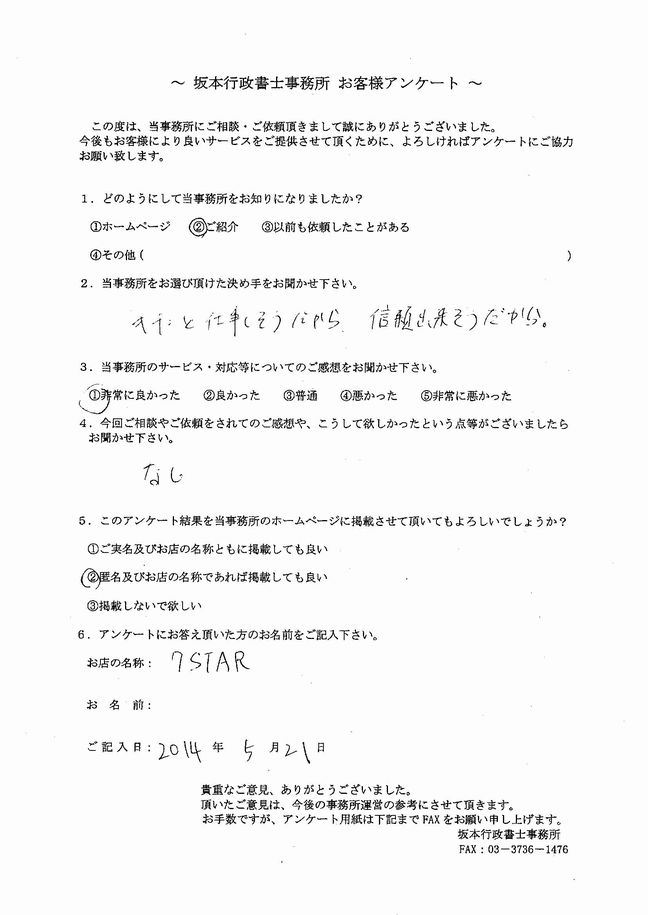 ～ 坂本行政書士事務所 お客様アンケート ～
この度は、当事務所にご相談・ご依頼頂きまして誠にありがとうございました。
今後もお客様により良いサービスをご提供させて頂くために、よろしければアンケートにご協力
お願い致します。
１．どのようにして当事務所をお知りになりましたか？
①ホームページ ②ご紹介 ③以前も依頼したことがある
④その他（ ）
２．当事務所をお選び頂けた決め手をお聞かせ下さい。
きちんと仕事しそうだから 信頼出来そうだから。
３．当事務所のサービス・対応等についてのご感想をお聞かせ下さい。
①非常に良かった ②良かった ③普通 ④悪かった ⑤非常に悪かった
４．今回ご相談やご依頼をされてのご感想や、こうして欲しかったという点等がございましたら
お聞かせ下さい。
なし
５．このアンケート結果を当事務所のホームページに掲載させて頂いてもよろしいでしょうか？
①ご実名及びお店の名称ともに掲載しても良い
②匿名及びお店の名称であれば掲載しても良い
③掲載しないで欲しい
６．アンケートにお答え頂いた方のお名前をご記入下さい。
お店の名称： 7STAR
お 名 前：
ご記入日：2014 年 5 月 21 日
貴重なご意見、ありがとうございました。
頂いたご意見は、今後の事務所運営の参考にさせて頂きます。
お手数ですが、アンケート用紙は下記まで FAX をお願い申し上げます。
坂本行政書士事務所
FAX：03－3736－1476